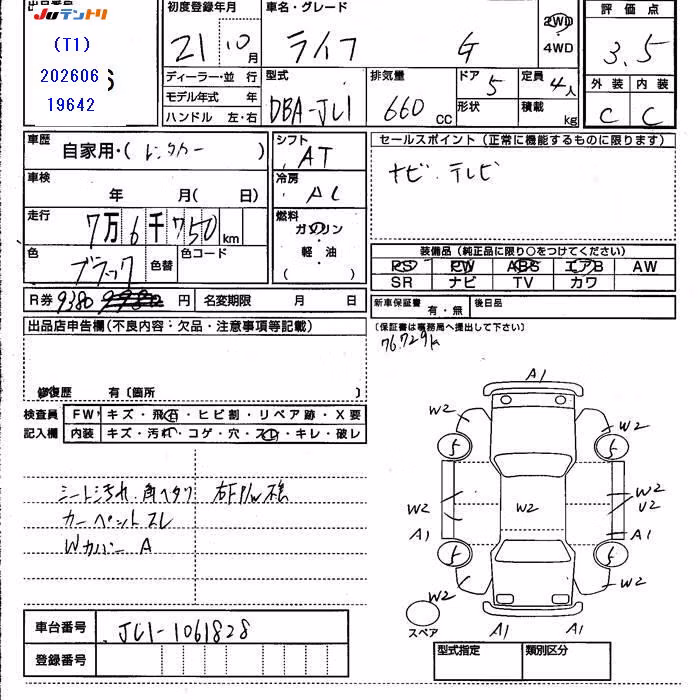 出品番号
Juテントリ
(T1)
202606
19642
初度登録年月
21 10月
車名・グレード
ライフ G
2WD
4WD
評価点
3.5
外装 内装
C C
ディーラー・並行
モデル年式 年
ハンドル 左・右
型式
DBA-JC1
排気量
660 cc
ドア 5
形状
定員 4人
積載 kg
車歴
自家用・(レンタカー)
車検
年 月(日)
走行
7万6千750km
色
ブラック
色替
色コード
R券 9380 円 名変期限 月 日
シフト
AT
冷房
AC
燃料
ガソリン
・
軽油
( )
セールスポイント(正常に機能するものに限ります)
ナビ・テレビ
装備品(純正品に限り○をつけてください)
PS PW ABS エアB AW
SR ナビ TV カワ
新車保証書 有・無 後日品
(保証書は事務局へ提出して下さい)
76.729k
出品店申告欄(不良内容・欠品・注意事項等記載)
修復歴 有〔箇所 〕
検査員 FW キズ・飛石・ヒビ割・リペア跡・X要
記入欄 内装 キズ・汚れ・コゲ・穴・スレ・キレ・破レ
シート汚れ、角ヘタリ
カーペットスレ
Wカバー A
A1
W2 W2
5 5
W2 W2 W2
U2
A1 A1
5 5
W2 W2
スペア A1 A1
車台番号 JC1-1061828
登録番号
型式指定 類別区分